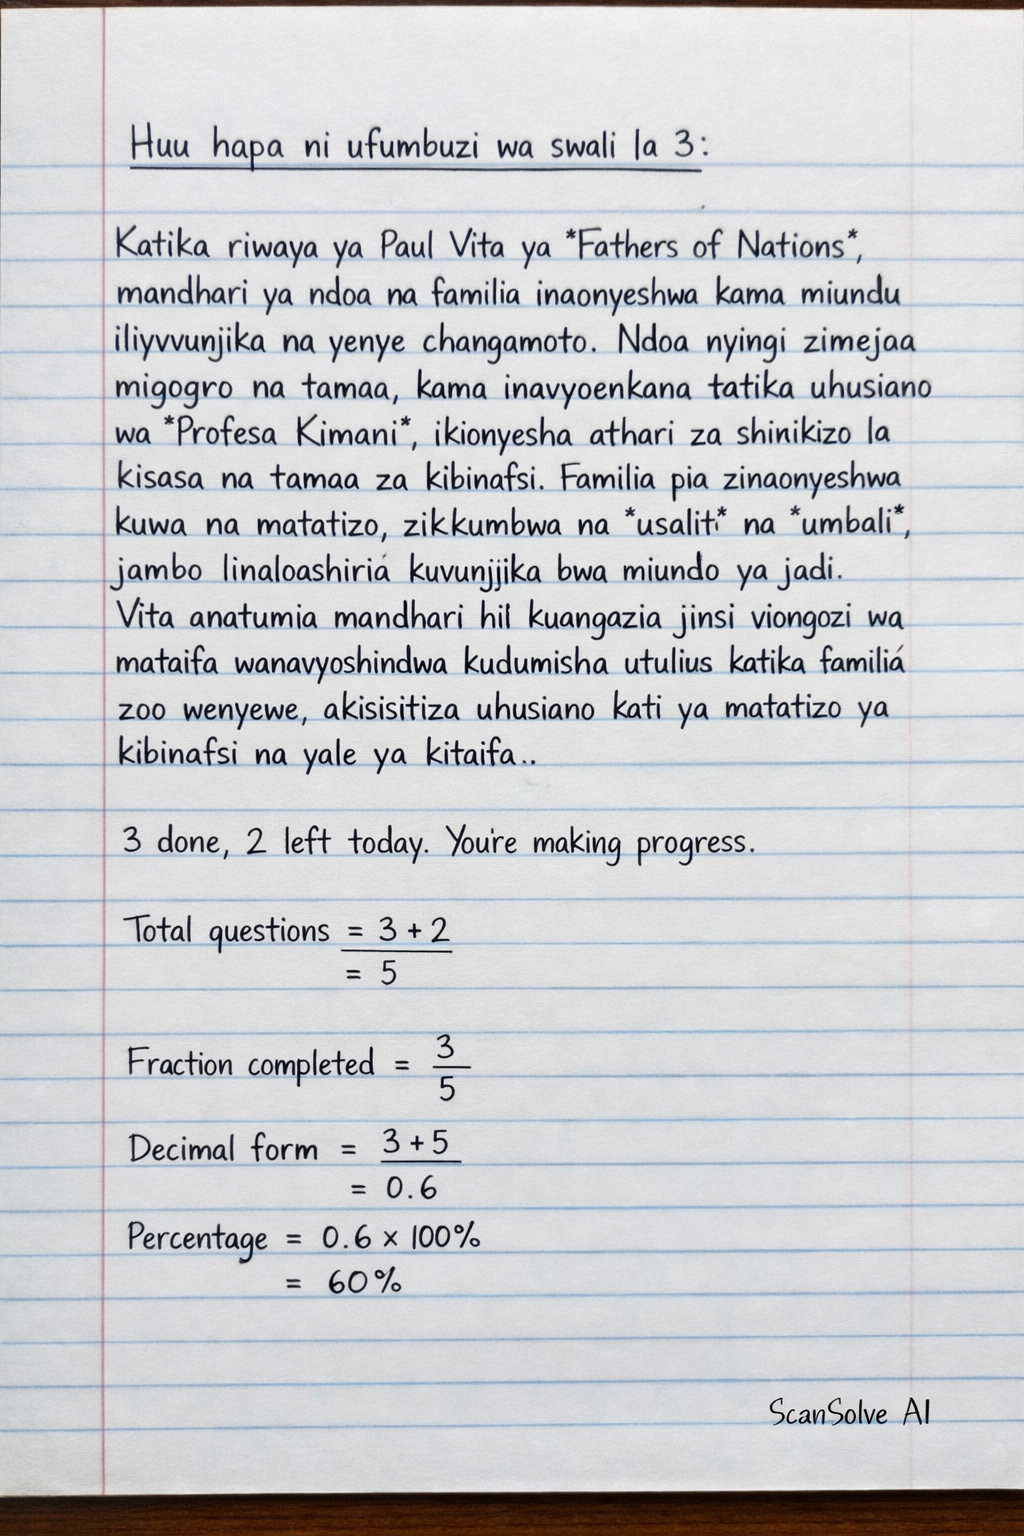 Huu hapa ni ufumbuzi wa swali la 3:
Katika riwaya ya Paul Vita ya *Fathers of Nations*,
mandhari ya ndoa na familia inaonyeshwa kama miundu
iliyvvunjika na yenye changamoto. Ndoa nyingi zimejaa
migogro na tamaa, kama inavyoenkana tatika uhusiano
wa *Profesa Kimani*, ikionyesha athari za shinikizo la
kisasa na tamaa za kibinafsi. Familia pia zinaonyeshwa
kuwa na matatizo, zikkumbwa na *usaliti* na *umbali*,
jambo linaloashiriá kuvunjjika bwa miundo ya jadi.
Vita anatumia mandhari hil kuangazia jinsi viongozi wa
mataifa wanavyoshindwa kudumisha utulius katika familiá
zoo wenyewe, akisisitiza uhusiano kati ya matatizo ya
kibinafsi na yale ya kitaifa..
3 done, 2 left today. You're making progress.
Total questions = 3 + 2
= 5
Fraction completed = 3/5
Decimal form = 3 + 5
= 0.6
Percentage = 0.6 × 100%
= 60%
ScanSolve AI